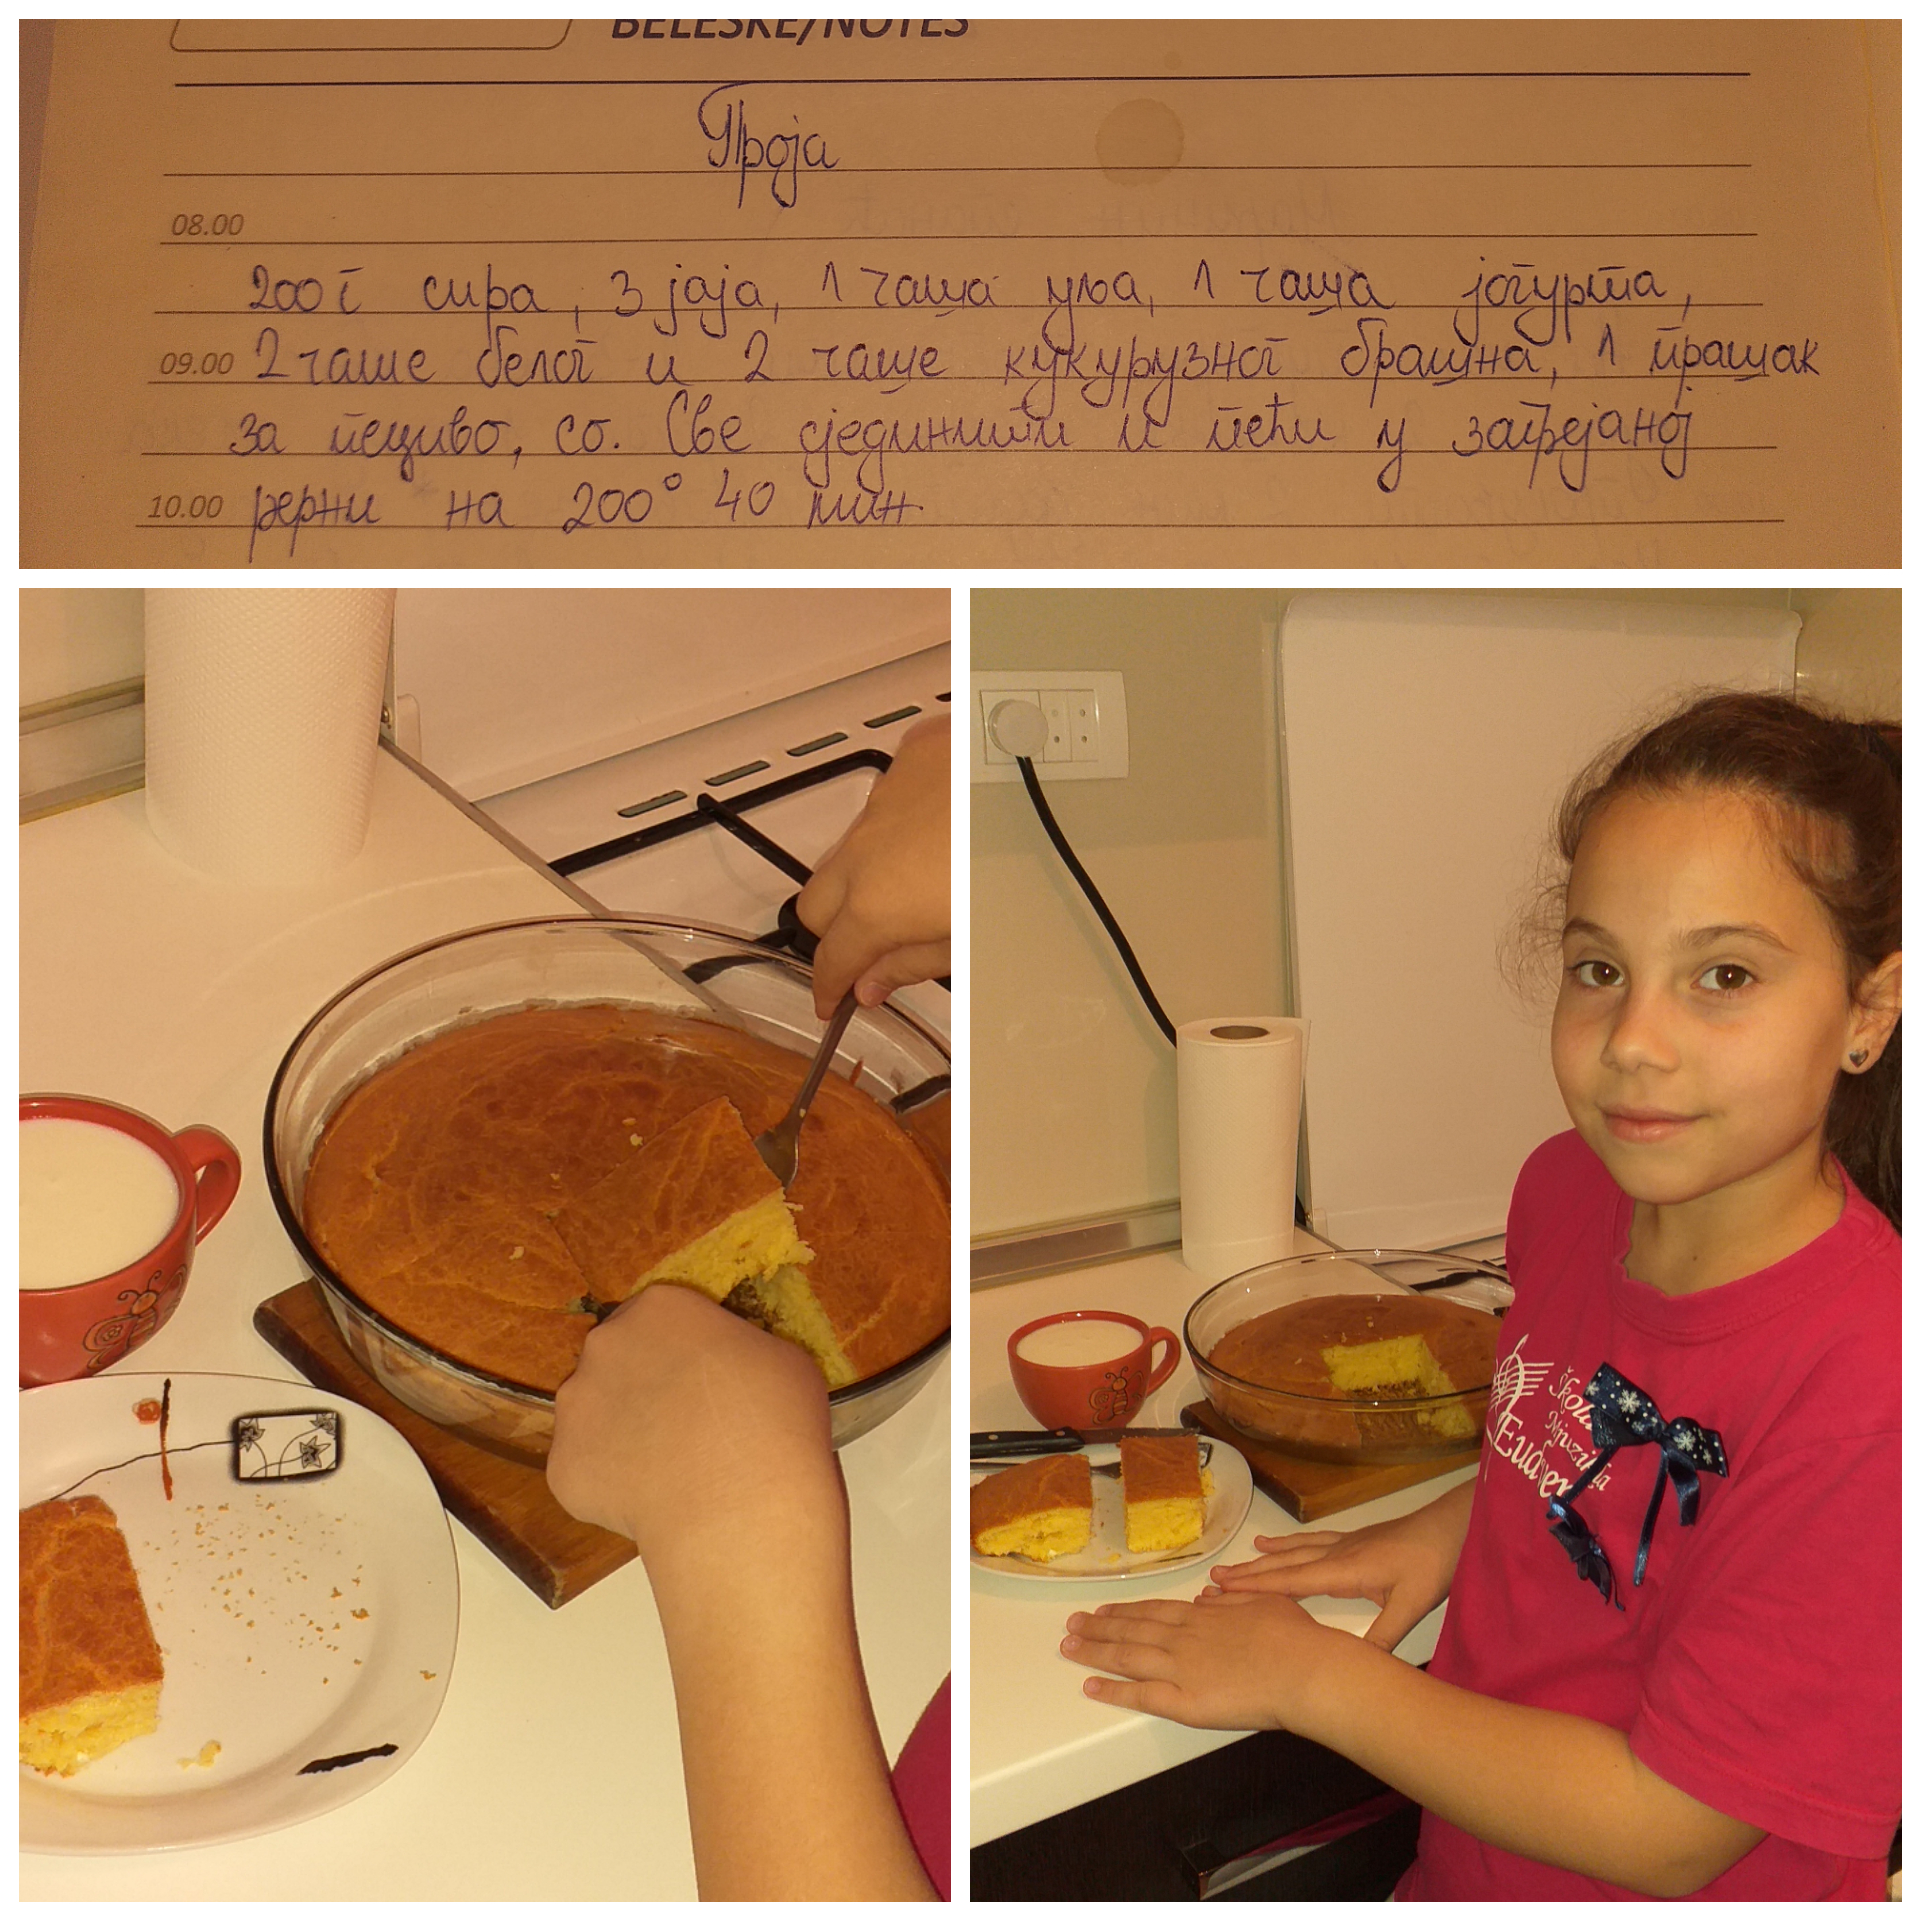 BELEŠKE/NOTES
Проја
08.00
200 г сира, 3 јаја, 1 чаша уља, 1 чаша јогурта,
09.00 2 чаше белог и 2 чаше кукурузног брашна, 1 прашак
за пециво, со. Све сјединити и пећи у загрејаној
10.00 рерни на 200° 40 мин.
Škola